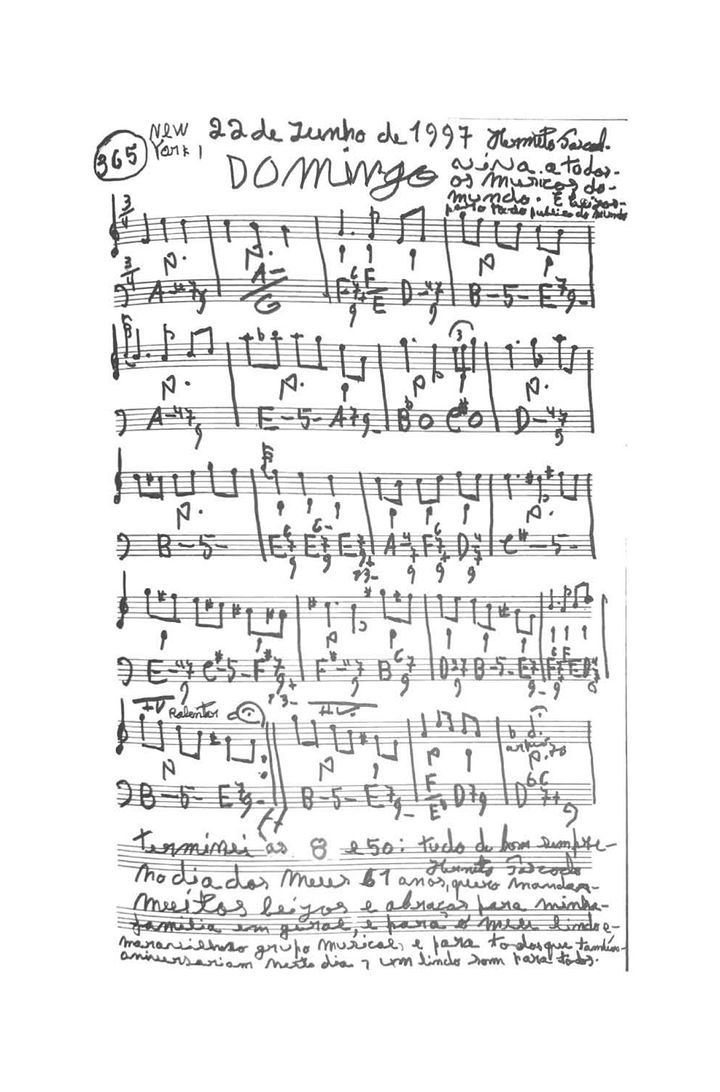 365
NEW York
22 de Junho de 1997
Hermeto Pascoal.
DOMINGO
e todos-
os musicos do-
mundo.
para todo publico do mundo
3/4
3/4 A-47/9 A-/G F67+/9 F/E D-47/9 B-5- E7/9-
A-47/9 E-5- A7/9- Bb0 C#0 D-47/9
3
B-5- E67/9 C#-5-
E-47/9 C#-5- F#-47/9 B67/9 B-5- E7/9-
Ralentar
B-5- E7/9- B-5- E7/9- D7/9
Terminei as 8 e 50: tudo de bom sempre-
Hermeto Pascoal
No dia dos meus 61 anos, quero mandar-
muitos beijos e abraços para minha-
familia em geral, e para o meu lindo e-
maravilhoso grupo musical, e para todos que também-
aniversariam neste dia, um lindo som para todos.